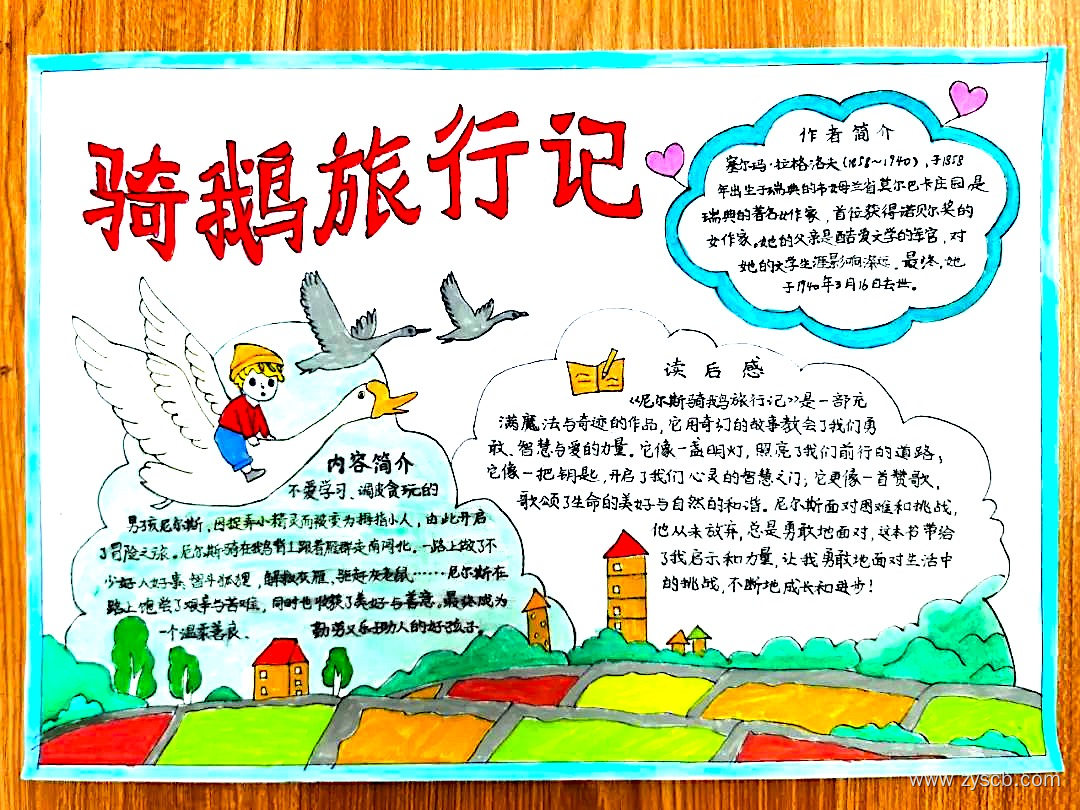 骑鹅旅行记
作者简介
塞尔玛·拉格洛夫(1858~1940),于1858
年出生于瑞典的韦姆兰省莫尔巴卡庄园,是
瑞典的著名女作家,首位获得诺贝尔奖的
女作家。她的父亲是酷爱文学的军官,对
她的文学生涯影响深远。最终,她
于1940年3月16日去世。
读后感
《尼尔斯骑鹅旅行记》是一部充
满魔法与奇迹的作品,它用奇幻的故事教会了我们勇
敢、智慧与爱的力量。它像一盏明灯,照亮了我们前行的道路;
它像一把钥匙,开启了我们心灵的智慧之门;它更像一首赞歌,
歌颂了生命的美好与自然的和谐。尼尔斯面对困难和挑战,
他从未放弃,总是勇敢地面对,这本书带给
了我启示和力量,让我勇敢地面对生活中
的挑战,不断地成长和进步!
内容简介
不爱学习、调皮贪玩的
男孩尼尔斯,因捉弄小精灵而被变为拇指小人,由此开启
了冒险之旅。尼尔斯骑在鹅背上跟着雁群走南闯北。一路上做了不
少好人好事 智斗狐狸,解救灰雁,驱赶灰老鼠……尼尔斯在
路上饱尝了艰辛与苦难,同时也收获了美好与善意。最终成为
一个温柔善良、勤劳又乐于助人的好孩子。
www.zyscb.com